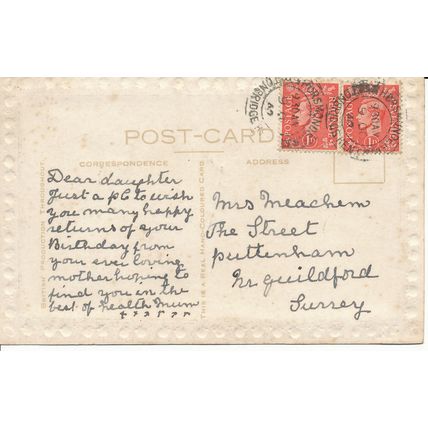 POST-CARD
CORRESPONDENCE
ADDRESS
BRITISH PRODUCTION THROUGHOUT.
THIS IS A REAL HAND-COLOURED CARD.
Dear daughter
Just a pc to wish
you many happy
returns of your
Birthday from
your ever loving
mother hoping to
find you in the
best of health Mum
x x x x x x
Mrs Meachem
The Street
puttenham
nr guildford
Surrey